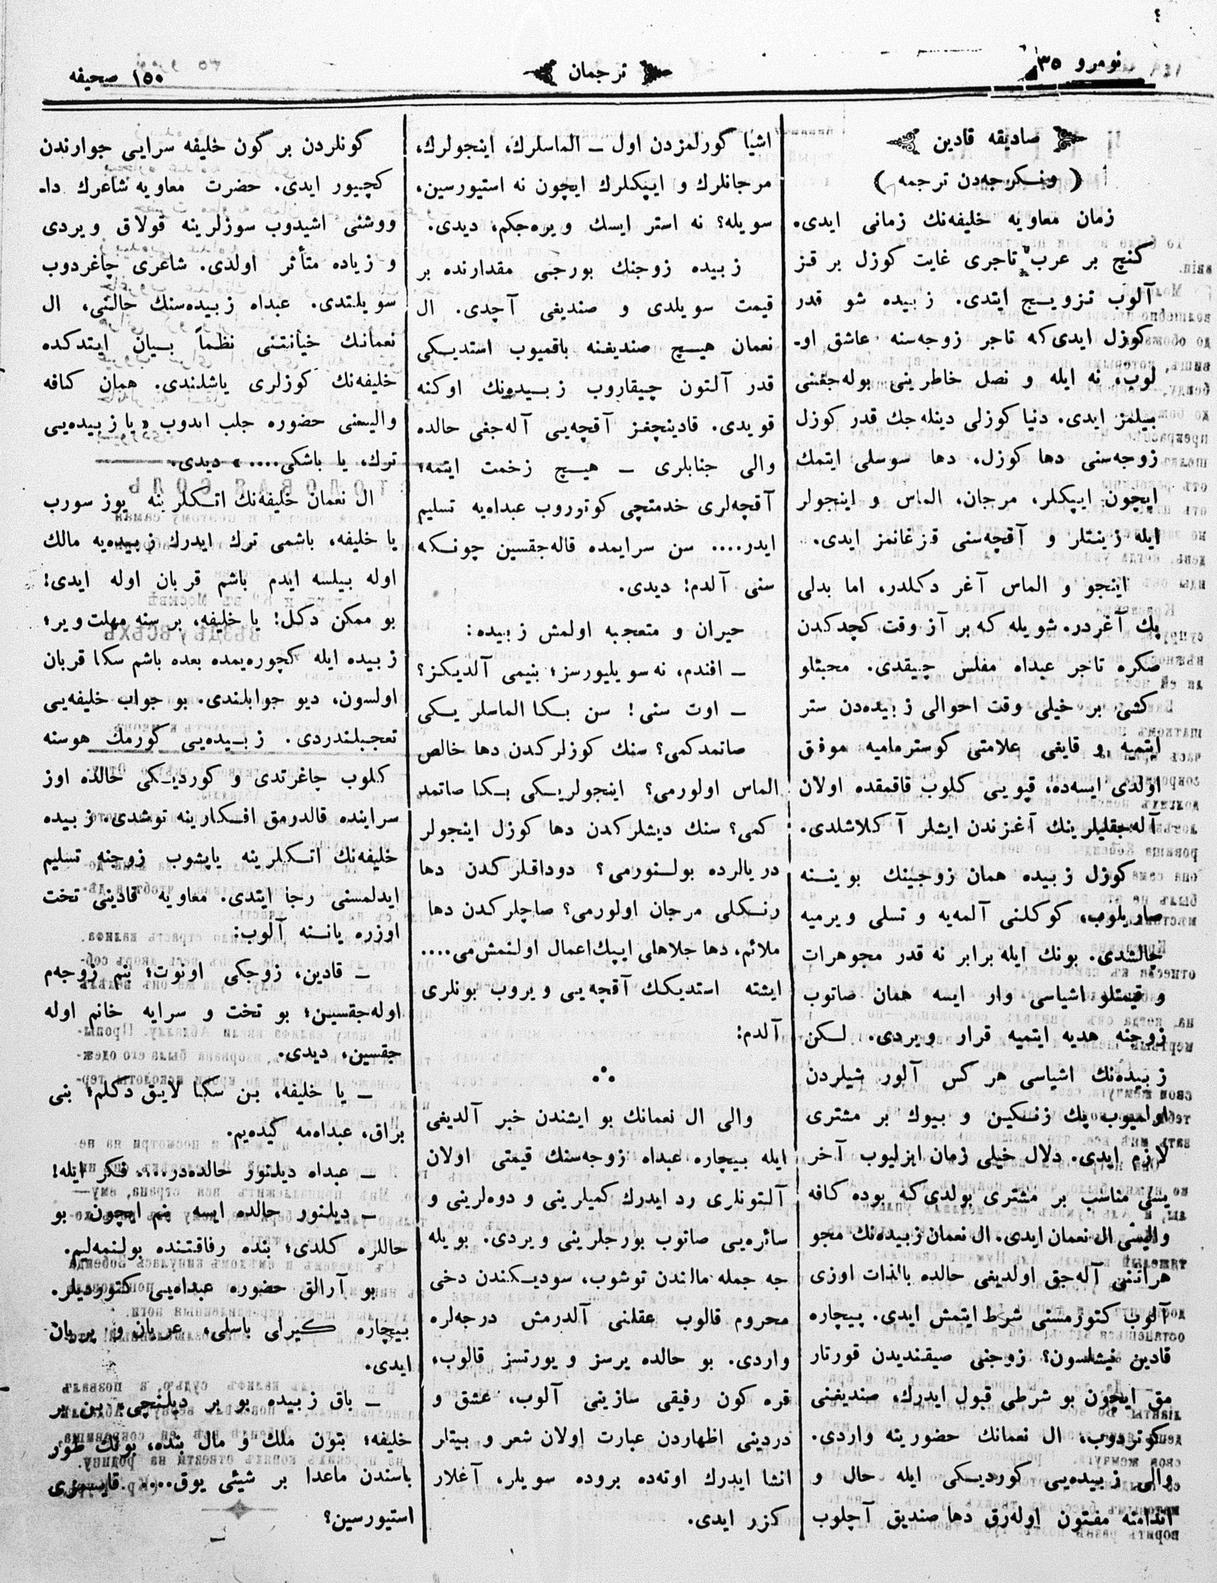 ٤
نومرو ٣٥
ترجمان
١٥٠ صحيفه
صاديقه قادين
( ونكرجه‌دن ترجمه )
زمان معاويه خليفه‌نك زمانى ايدى.
كنچ بر عرب تاجرى غايت كوزل بر قز
آلوب تزويج ايتدى. زبيده شو قدر
كوزل ايدى‌كه تاجر زوجه‌سنه عاشق او-
لوب، نه ايله و نصل خاطرينى بوله‌جغنى
بيلمز ايدى. دنيا كوزلى دينله‌جك قدر كوزل
زوجه‌سنى دها كوزل، دها سوسلى ايتمك
ايچون ايپكلر، مرجان، الماس و اينجولر
ايله زينتلر و آقچه‌سنى قزغانمز ايدى.
اينجو و الماس آغر دكلدر، اما بدلى
پك آغردر. شويله كه بر آز وقت كچدكدن
صكره تاجر عبداه مفلس چيقدى. محبتلو
كشى بر خيلى وقت احوالى زبيده‌دن ستر
ايتميه و قايغى علامتى كوسترماميه موفق
اولدى ايسه‌ده، قپويى كلوب قاقمقده اولان
آله‌جقليلرينك آغزندن ايشلر آكلاشلدى.
كوزل زبيده همان زوجينك بوينه
صاريلوب، كوكلنى آلمه‌يه و تسلى ويرميه
چالشدى. بونك ايله برابر نه قدر مجوهرات
و قيمتلو اشياسى وار ايسه همان صاتوب
زوجنه هديه ايتميه قرار ويردى. لكن
زبيده‌نك اشياسى هر كس آلور شيلردن
اولميوب پك زنكين و بيوك بر مشترى
لازم ايدى. دلال خيلى زمان ايزليوب آخر
يسى مناسب بر مشترى بولدى‌كه بوده كافه
واليسى ال نعمان ايدى. ال نعمان زبيده‌نك مجو
هراتنى آله‌جق اولديغى حالده بالذات اوزى
آلوب كتورمسنى شرط ايتمش ايدى. بيچاره
قادين نيشلسون؟ زوجنى صيقنديدن قورتار
مق ايچون بو شرطى قبول ايدرك، صنديغنى
كوتردوب، ال نعمانك حضورينه واردى.
والى زبيده‌يى كورديكى ايله حال و
اندامنه مفتون اوله‌رق دها صنديق آچلوب
اشيا كورلمزدن اول — الماسلرك، اينجولرك،
مرجانلرك و ايپكلرك ايچون نه استيورسين،
سويله؟ نه استر ايسك ويره‌جكم، ديدى.
زبيده زوجنك بورجى مقدارنده بر
قيمت سويلدى و صنديغى آچدى. ال
نعمان هيچ صنديغنه باقميوب استديكى
قدر آلتون چيقاروب زبيده‌نك اوكنه
قويدى. قادينجغز آقچه‌يى آله‌جغى حالده
والى جنابلرى — هيچ زخمت ايتمه؛
آقچه‌لرى خدمتچى كوتوروب عبداه‌يه تسليم
ايدر.... سن سرايمده قاله‌جقسين چونكه
سنى آلدم! ديدى.
حيران و متعجبه اولمش زبيده:
— افندم، نه سويليورسز؛ بنيمى آلديكز؟
— اوت سنى! سن بكا الماسلريكى
صاتمدكمى؟ سنك كوزلركدن دها خالص
الماس اولورمى؟ اينجولريكى بكا صاتمد
كمى؟ سنك ديشلركدن دها كوزل اينجولر
دريالرده بولنورمى؟ دوداقلركدن دها
رنكلى مرجان اولورمى؟ صاچلركدن دها
ملائم، دها جلاهلى ايپك اعمال اولنمش‌مى....
ايشته استديكك آقچه‌يى ويروب بونلرى
آلدم!
والى ال نعمانك بو ايشندن خبر آلديغى
ايله بيچاره عبداه زوجه‌سنك قيمتى اولان
آلتونلرى رد ايدرك كميلرينى و دوه‌لرينى و
سائره‌يى صاتوب بورجلرينى ويردى. بويله
جه جمله مالندن توشوب، سوديكندن دخى
محروم قالوب عقلنى آلدرمش درجه‌لره
واردى. بو حالده يرسز و يورتسز قالوب،
قره كون رفيقى سازينى آلوب، عشق و
دردينى اظهاردن عبارت اولان شعر و بيتلر
انشا ايدرك اوته‌ده بروده سويلر، آغلار
كزر ايدى.
كونلردن بر گون خليفه سرايى جوارندن
كچيور ايدى. حضرت معاويه شاعرك دا-
ووشنى اشيدوب سوزلرينه قولاق ويردى
و زياده متأثر اولدى. شاعرى چاغردوب
سويلتدى. عبداه زبيده‌سنك حالنى، ال
نعمانك خيانتنى نظماً بيان ايتدكده
خليفه‌نك كوزلرى ياشلندى. همان كافه
واليسنى حضوره جلب ايدوب «يا زبيده‌يى
ترك، يا باشكى....» ديدى.
ال نعمان خليفه‌نك اتكلرينه يوز سورب
يا خليفه، باشمى ترك ايدرك زبيده‌يه مالك
اوله بيلسه ايدم باشم قربان اوله ايدى!
بو ممكن دكل! يا خليفه، بر سنه مهلت وير؛
زبيده ايله كچوره‌يمده بعده باشم سكا قربان
اولسون، ديو جوابلندى. بو جواب خليفه‌يى
تعجبلندردى. زبيده‌يى كورمك هوسنه
كلوب چاغرتدى و كورديكى حالده اوز
سراينده قالدرمق افكارينه توشدى. زبيده
خليفه‌نك اتكلرينه ياپشوب زوجنه تسليم
ايدلمسنى رجا ايتدى. معاويه قادينى تخت
اوزره يانسه آلوب:
— قادين، زوجكى اونوت؛ بنم زوجه‌م
اوله‌جقسين؛ بو تخت و سرايه خانم اوله
جقسين، ديدى.
— يا خليفه، بن سكا لايق دكلم؛ بنى
براق، عبداه‌مه كيده‌يم.
— عبداه ديلنور حالده‌در.... فكر ايله!
— ديلنور حالده ايسه بنم ايچون بو
حاللره كلدى؛ بنده رفاقتنده بولنمه‌ليم.
بو آرالق حضوره عبداه‌يى كتورديلر.
بيچاره كيرلى باسلى، عريان و پريان
ايدى.
— باق زبيده بو بر ديلنچى، بن بر
خليفه؛ بتون ملك و مال بنده، بونك طور
باسندن ماعدا بر شيئى يوق.... قايسزى
استيورسين؟